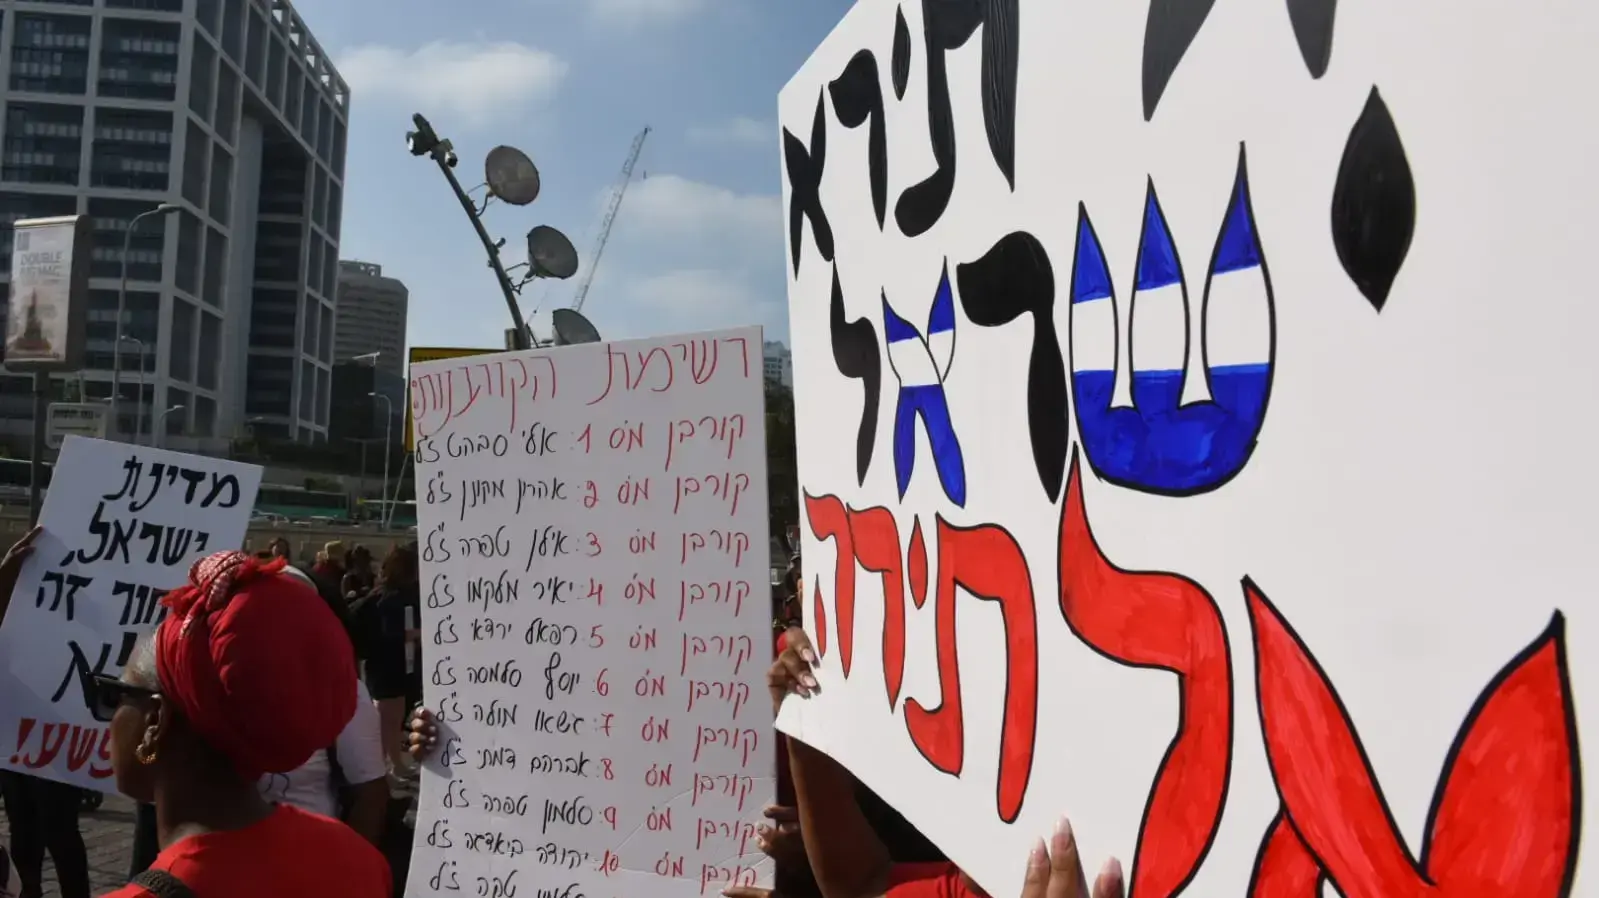 DOUBLE
BIG MAC
מדינת
ישראל,
זה
פשע!
רשימת הקורבנות:
קורבן מס' 1: אלי סבהט ז"ל
קורבן מס' 2: אהרון מקונן ז"ל
קורבן מס' 3: אילן טפרה ז"ל
קורבן מס' 4: יאיר מלקמו ז"ל
קורבן מס' 5: רפאל ירדאי ז"ל
קורבן מס' 6: יוסף סלמסה ז"ל
קורבן מס' 7: גשאו מולה ז"ל
קורבן מס' 8: אברהם דמתי ז"ל
קורבן מס' 9: סלמון טפרה ז"ל
קורבן מס' 10: יהודה ביאדגה ז"ל
טקה ז"ל
תירא
ישראל
אל תירה